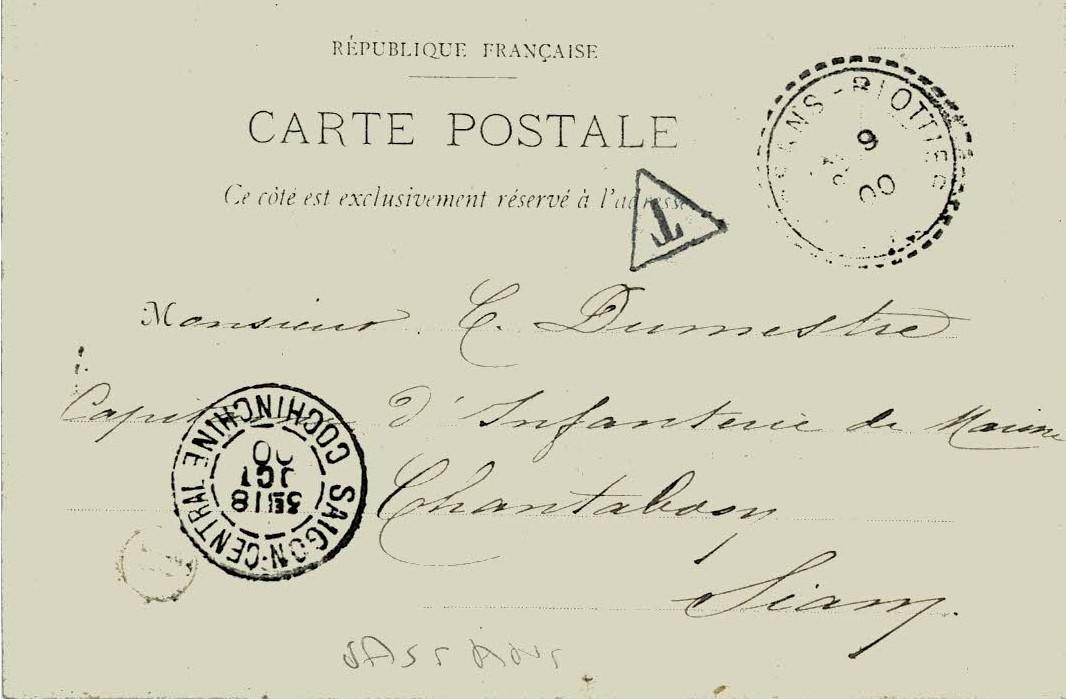 RÉPUBLIQUE FRANÇAISE
CARTE POSTALE
Ce côté est exclusivement réservé à l'adresse
T
SANS-RIOTTIER
6
00
Monsieur C. Dumestre
Capitaine d'Infanterie de Marine
Chantaboon
Siam.
SAIGON-CENTRAL COCHINCHINE
3E 18
OCT
00